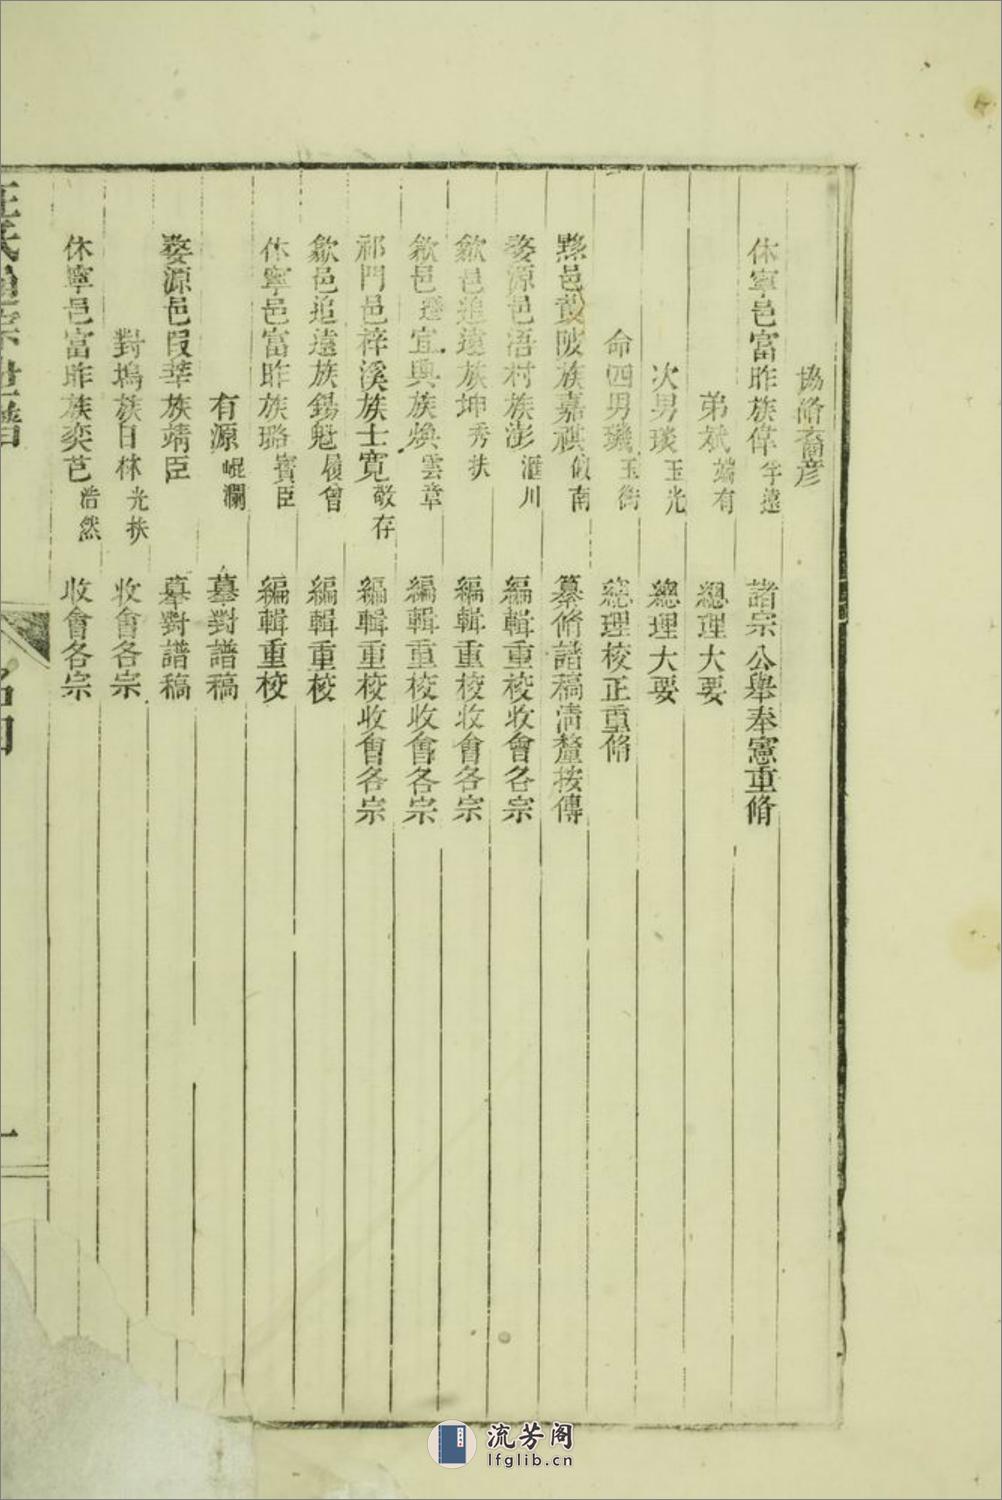 協脩裔彦
休寧邑富昨族偉字遠 諸宗公舉奉憲重脩
弟斌端有 總理大要
次男琰玉光 總理大要
命四男璣玉衡 總理校正重脩
黟邑黄陂族嘉祺似南 纂脩譜稿清釐按傳
婺源邑浯村族澎滙川 編輯重校收會各宗
歙邑追遠族坤秀扶 編輯重校收會各宗
歙邑遷宜興族煥雲章 編輯重校收會各宗
祁門邑梓溪族士寬敬存 編輯重校收會各宗
歙邑追遠族錫魁履曾 編輯重校
休寧邑富昨族璐賓臣 編輯重校
有源崐瀾 墓對譜稿
婺源邑叚莘族靖臣 墓對譜稿
對塢族日林光扶 收會各宗
休寧邑富昨族奕芑浩然 收會各宗
汪氏通宗世譜
一
流芳阁
lfglib.cn